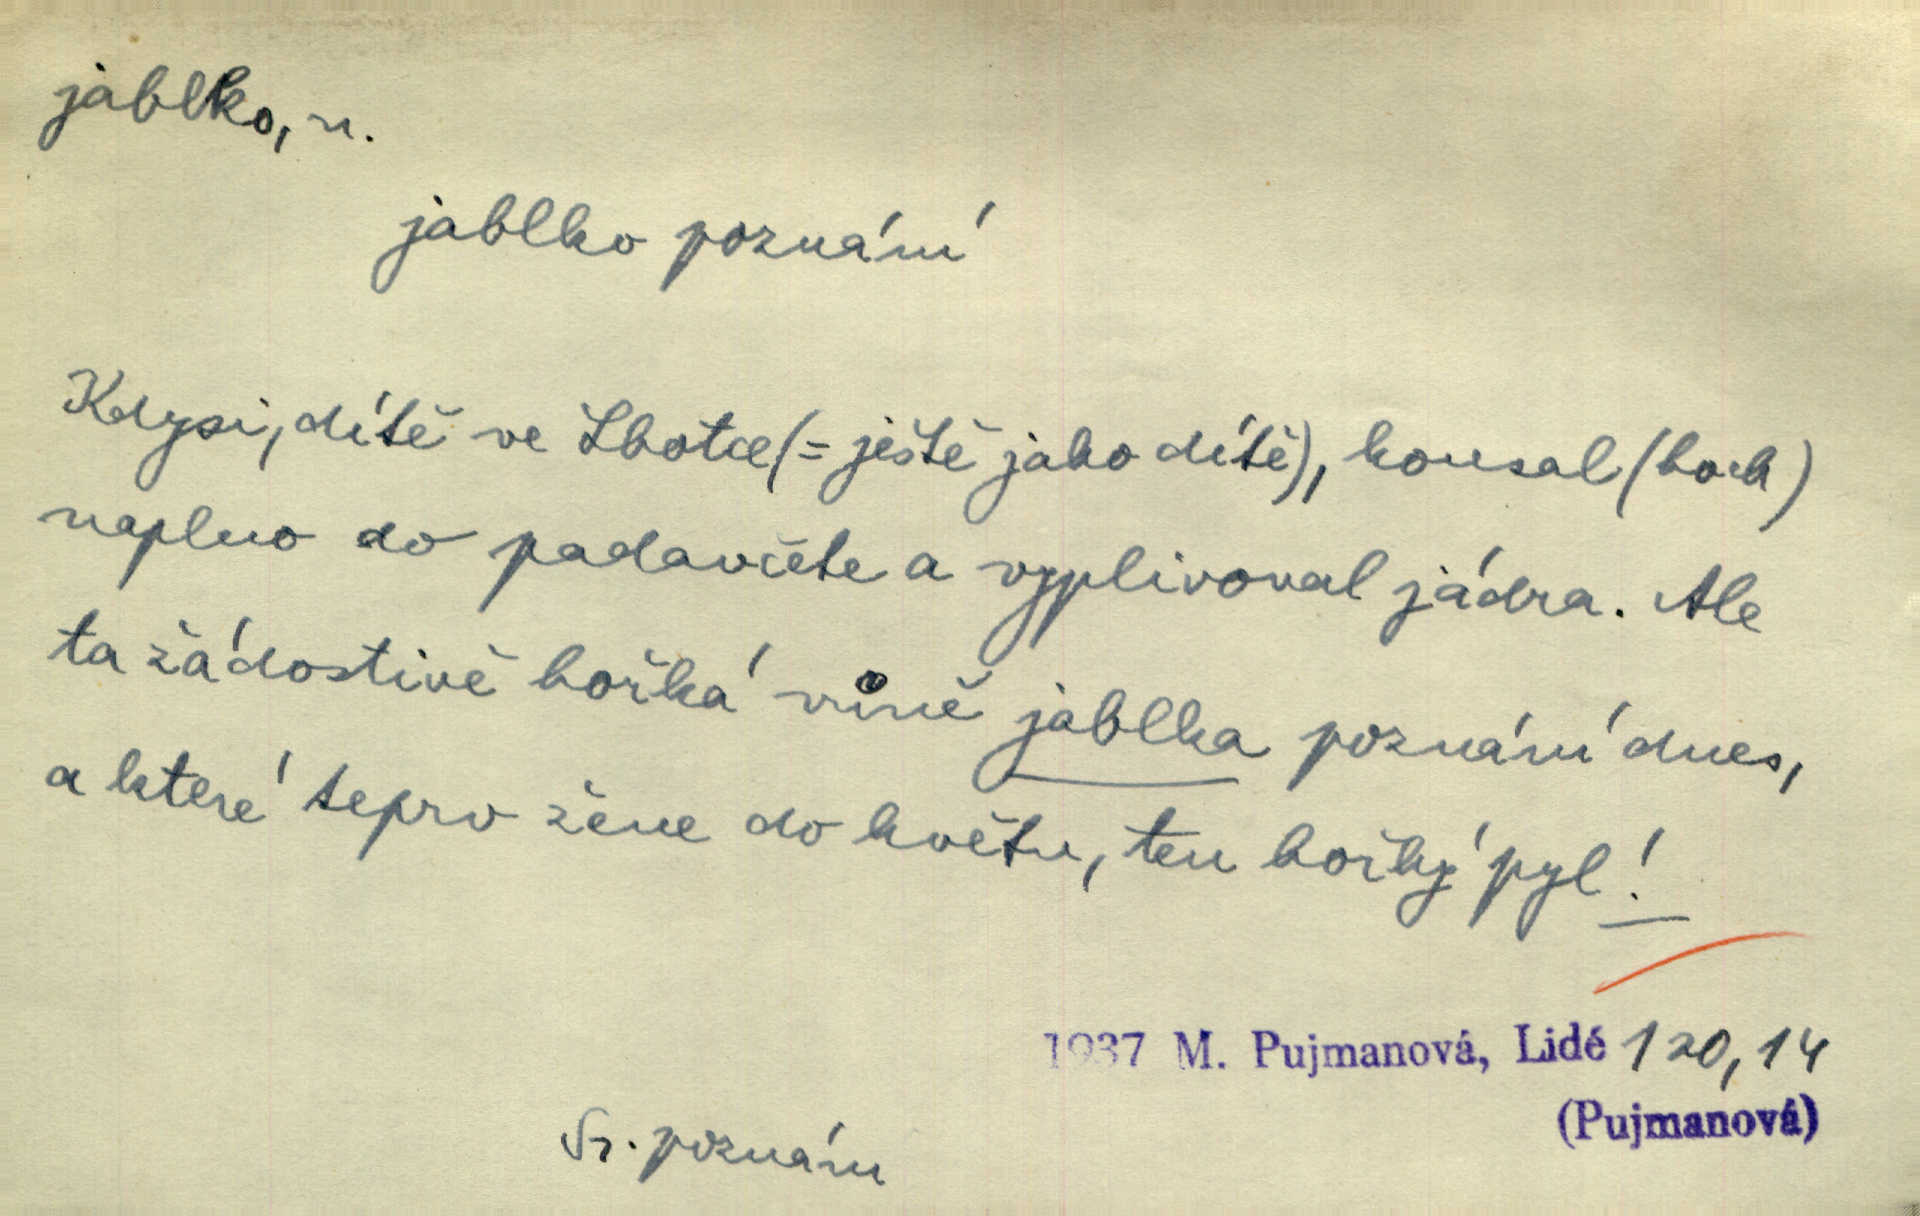 jablko, n.
jablko poznání
Kdysi, dítě ve Lhotce (= ještě jako dítě), kousal (hoch)
naplno do padavčete a vyplivoval jádra. Ale
ta žádostivě hořká vůně jablka poznání dnes,
a které teprv žene do květu, ten hořký pyl!
1937 M. Pujmanová, Lidé 120,14
(Pujmanová)
Sr. poznání